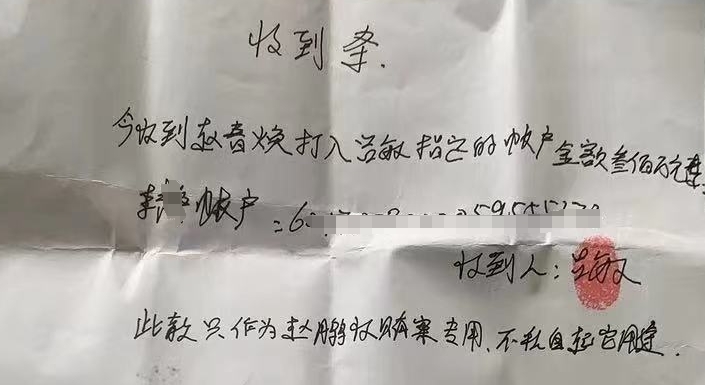 收到条.
今收到赵音焕打入吕敏指定的帐户金额叁佰万元整
帐户:6
收到人:吕敏
此款只作为赵鹏收贿案专用、不私自起它用途.